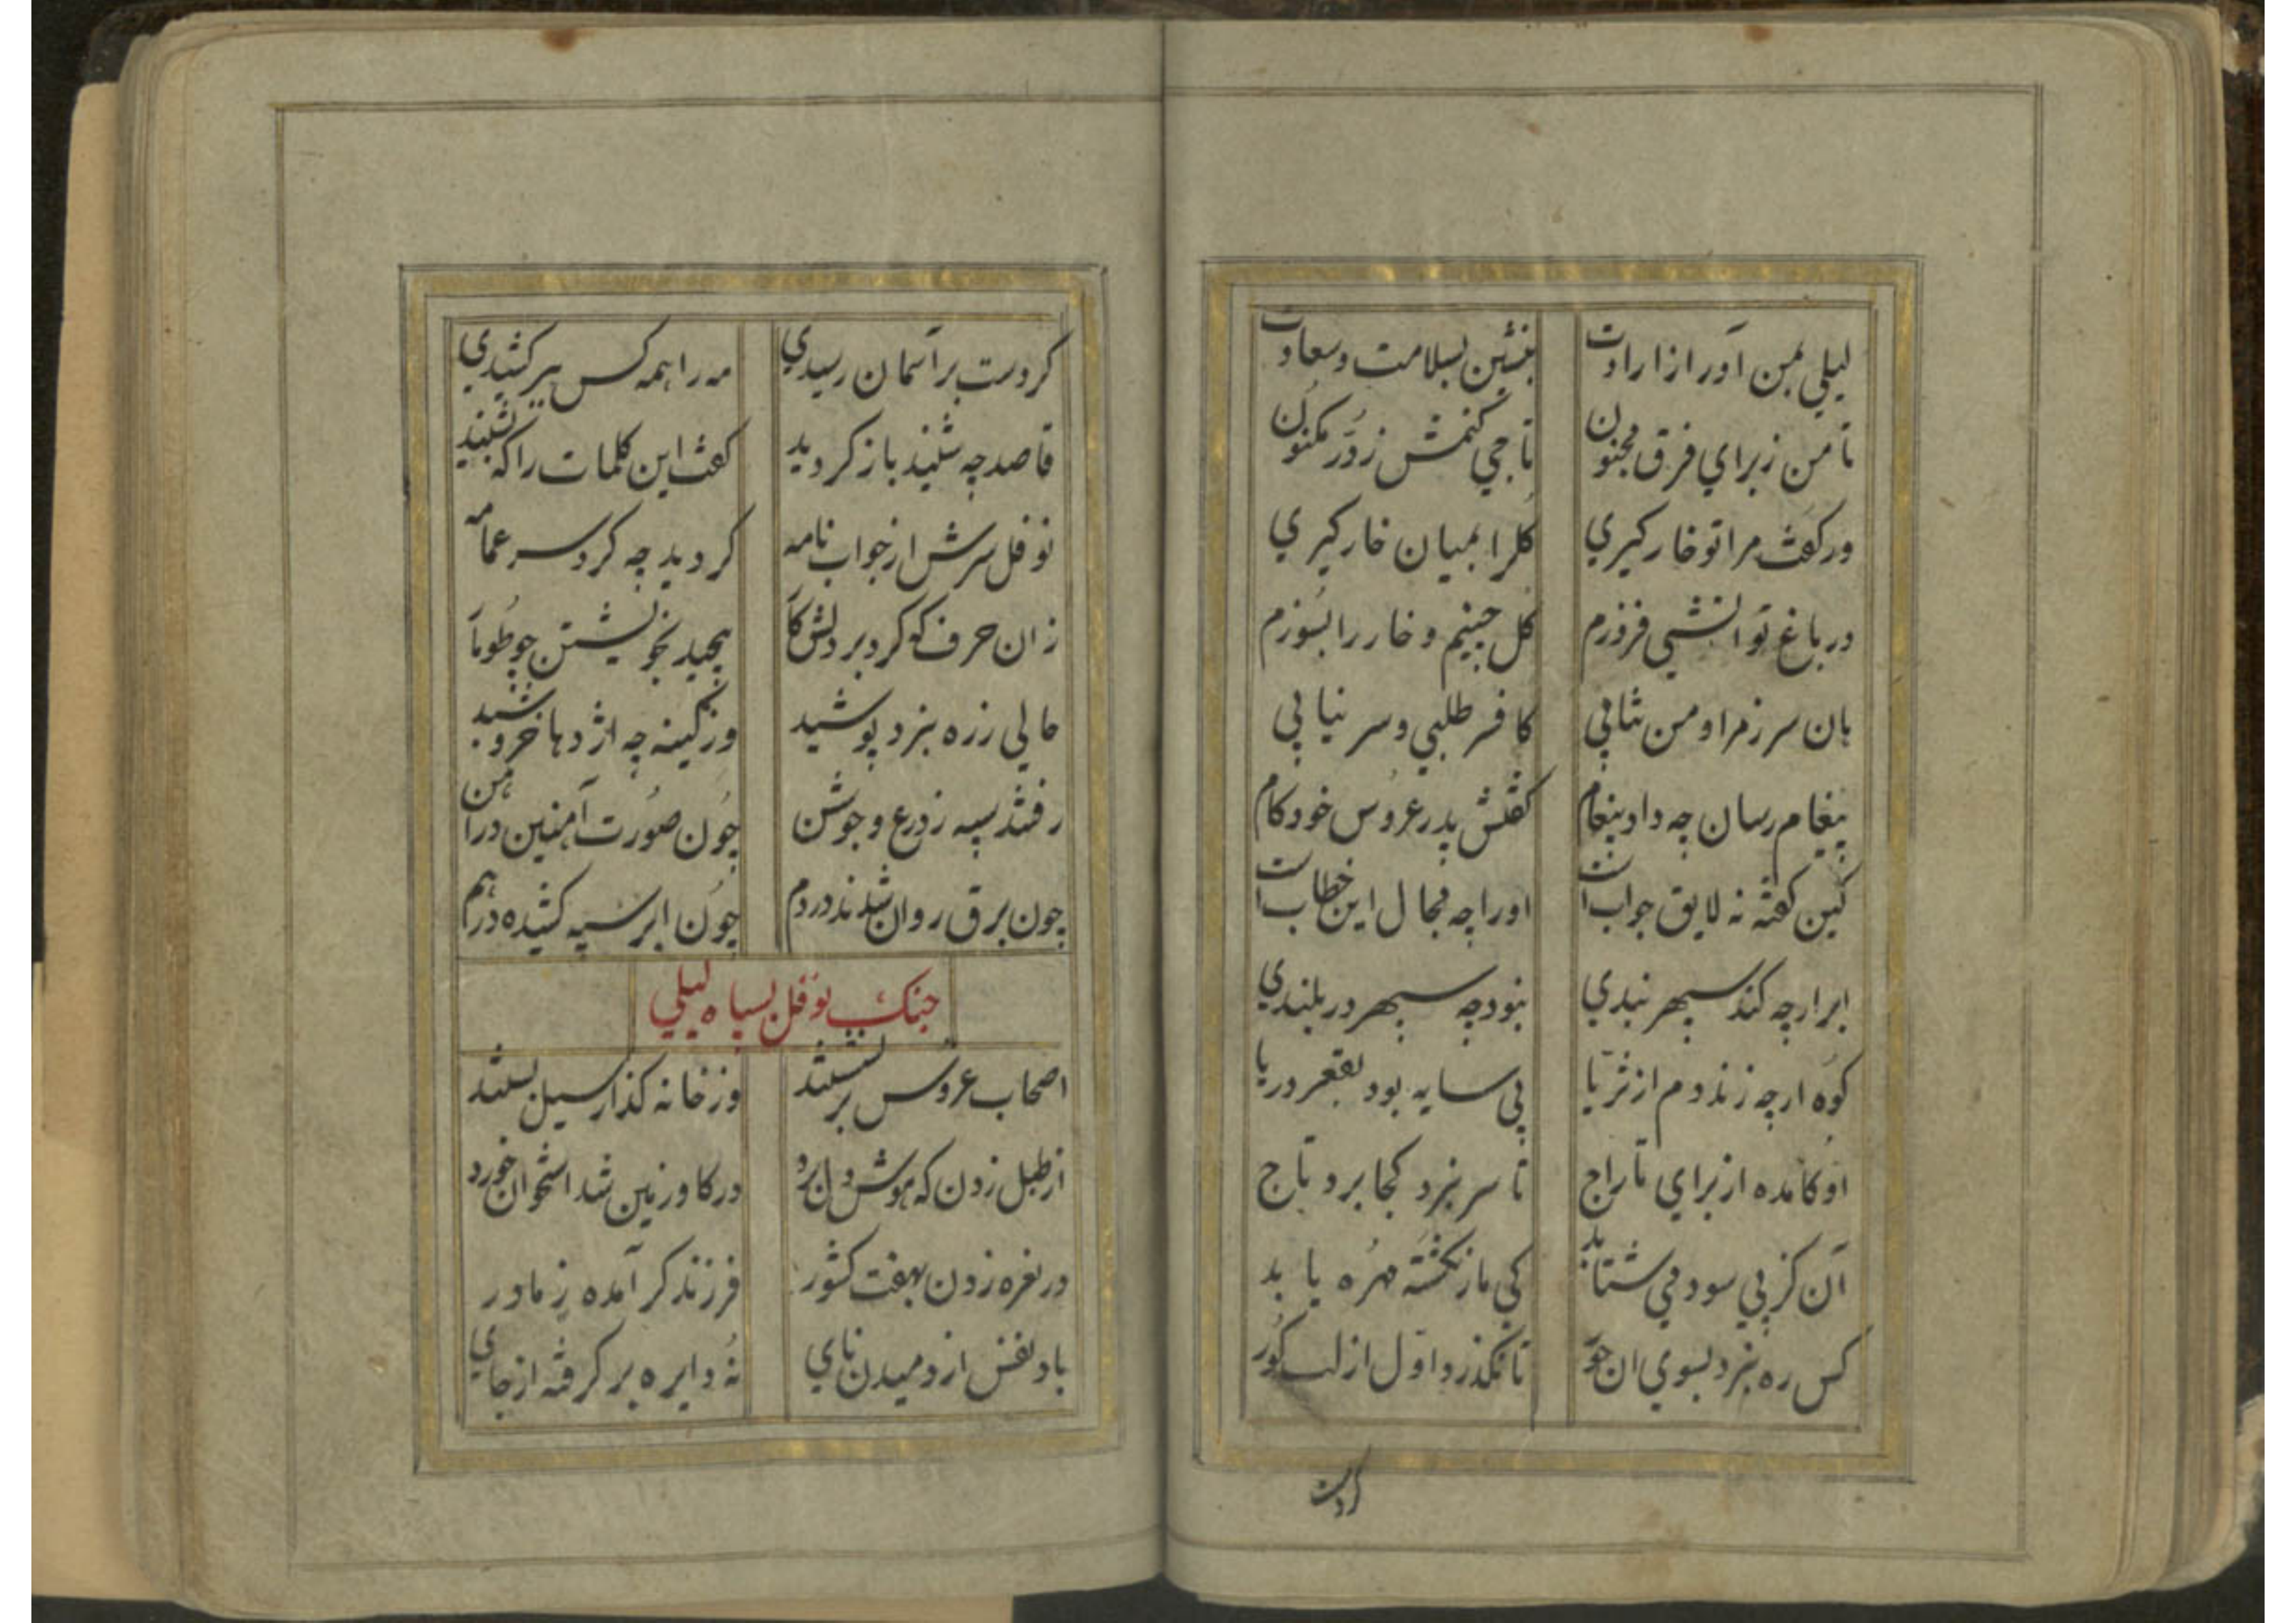 لیلي بمن آور از ارادت بنشین بسلامت وسعادت
تا من ز براي فرق مجنون تاجي کنمش ز دُرّ مکنون
ور کفت مرا تو خار کیري کلرا بمیان خار کیري
در باغ تو اتشي فروزم کل چینم و خار را بسوزم
هان سر ز مراد من نتابي کافر طلبي و سر نیابي
پیغام رسان چه داد پیغام کفتش پدر عروس خودکام
کین کفته نه لایق جوابست اورا چه مجال این خطابست
ابر ارچه کند سپهر بندي نبود چه سپهر در بلندي
کوه ارچه زند دم از ثریّا بي سایه بود بقعر دریا
او کامده از براي تاراج تا سر نبرد کجا برد تاج
آن کز پي سود مي شتابد کي مار نکشته مهره یابد
کس ره نبرد بسوي ان حور تا نکذرد اوّل از لب کور
کر دست
کر دست بر آسمان رسیدي مه را همه کس بزیر کشیدي
قاصد چه شنید باز کردید کفت این کلمات را که بشنید
نوفل سرش از جواب نامه کردید چه کرد سر عمامه
زان حرف که کرد بر دلش کار پیچید بخویشتن چو طومار
حالي زره نبرد پوشید وز کینه چه اژدها خروشید
رفتند سپه ز درع و جوشن چون صورت آهنین در آهن
چون برق روان شدند در دم چون ابر سیه کشیده درهم
جنک نوفل بسپاه لیلي
اصحاب عروس بر نشستند وز خانه کذار سیل بستند
از طبل زدن که هوش دل برد در کاو زمین شد استخوان خورد
در نعره زدن بهفت کشور فرزند کر آمده ز مادر
باد نفس از دمیدن ناي نُه دایره بر کرفته از جاي